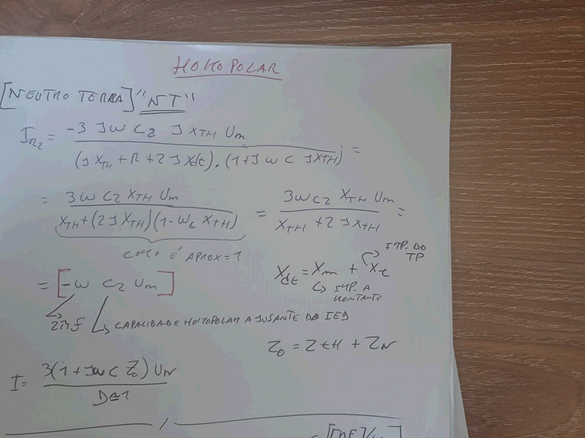 HOMOPOLAR
[NEUTRO TERRA] "NT"
I_R2 = -3 JW C2 J X_TH U_m / (J X_TH + R + 2 J X_dt) . (1 + J W C J X_TH) =
= 3 W C2 X_TH U_m / X_TH + (2 J X_TH) (1 - W_C X_TH) = 3 W C2 X_TH U_m / X_TH + 2 J X_TH =
COMO É APROX = 1
IMP. DO TP
X_dt = X_m + X_t
IMP. A MONTANTE
= [-W C2 U_m]
2πf
CAPACIDADE HOMOPOLAR A JUSANTE DO IED
Z_0 = Z_TH + Z_N
I = 3 (1 + J W C Z_0) U_N / D≅1